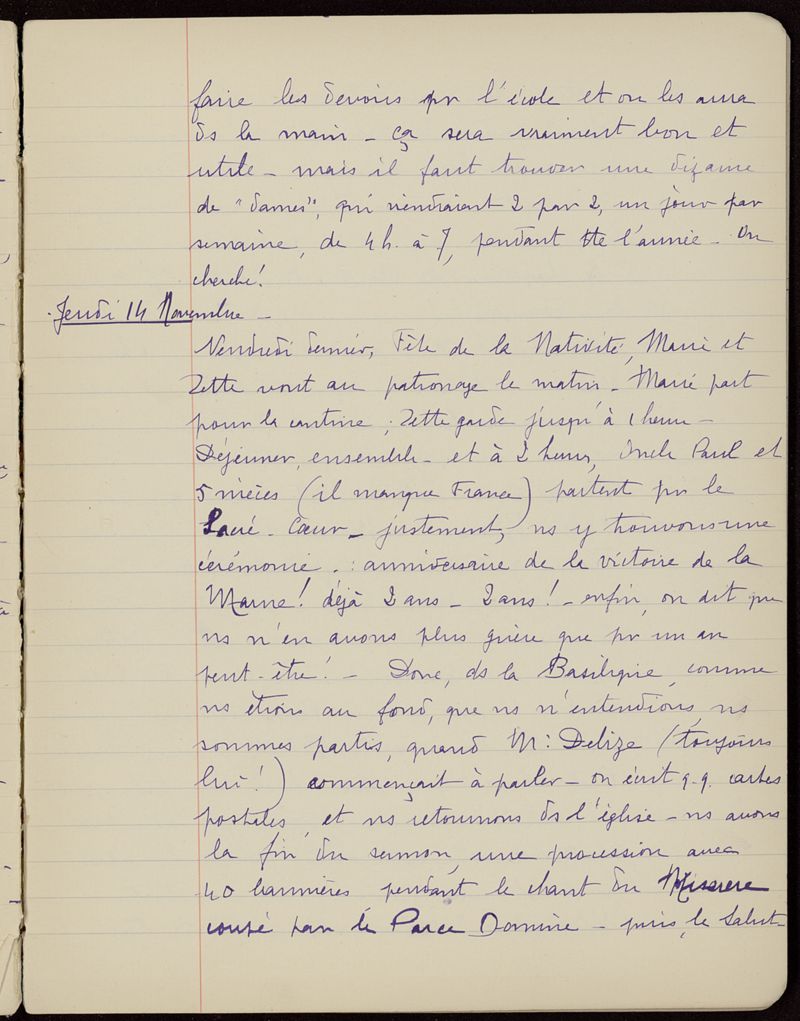 faire les devoirs pr l'école et on les aura
ds la main - ça sera vraiment bon et
utile - mais il faut trouver une dizaine
de "dames", qui viendraient 2 par 2, un jour par
semaine, de 4h. à 7, pendant tte l'année - On
cherche!
Jeudi 14 Novembre -
Vendredi dernier, Fête de la Nativité, Marie et
Zette vont au patronage le matin - Marie part
pour la cantine ; Zette garde jusqu'à 1 heure -
Déjeuner, ensemble - et à 2 heures, Oncle Paul et
5 nièces (il manque France) partent pr le
Sacré-Cœur - justement, ns y trouvons une
cérémonie . : anniversaire de la victoire de la
Marne ! déjà 2 ans - 2 ans ! - enfin, on dit que
ns n'en avons plus guère que pr un an
peut-être ! - Donc, ds la Basilique, comme
ns étions au fond, que ns n'entendions, ns
sommes partis, quand Mr Delize (toujours
lui !) commençait à parler - on écrit q.q. cartes
postales, et ns retournons ds l'église - ns avons
la fin du sermon, une procession avec
40 bannières pendant le chant du Miserere
coupé par le Parce Domine - puis, le Salut -